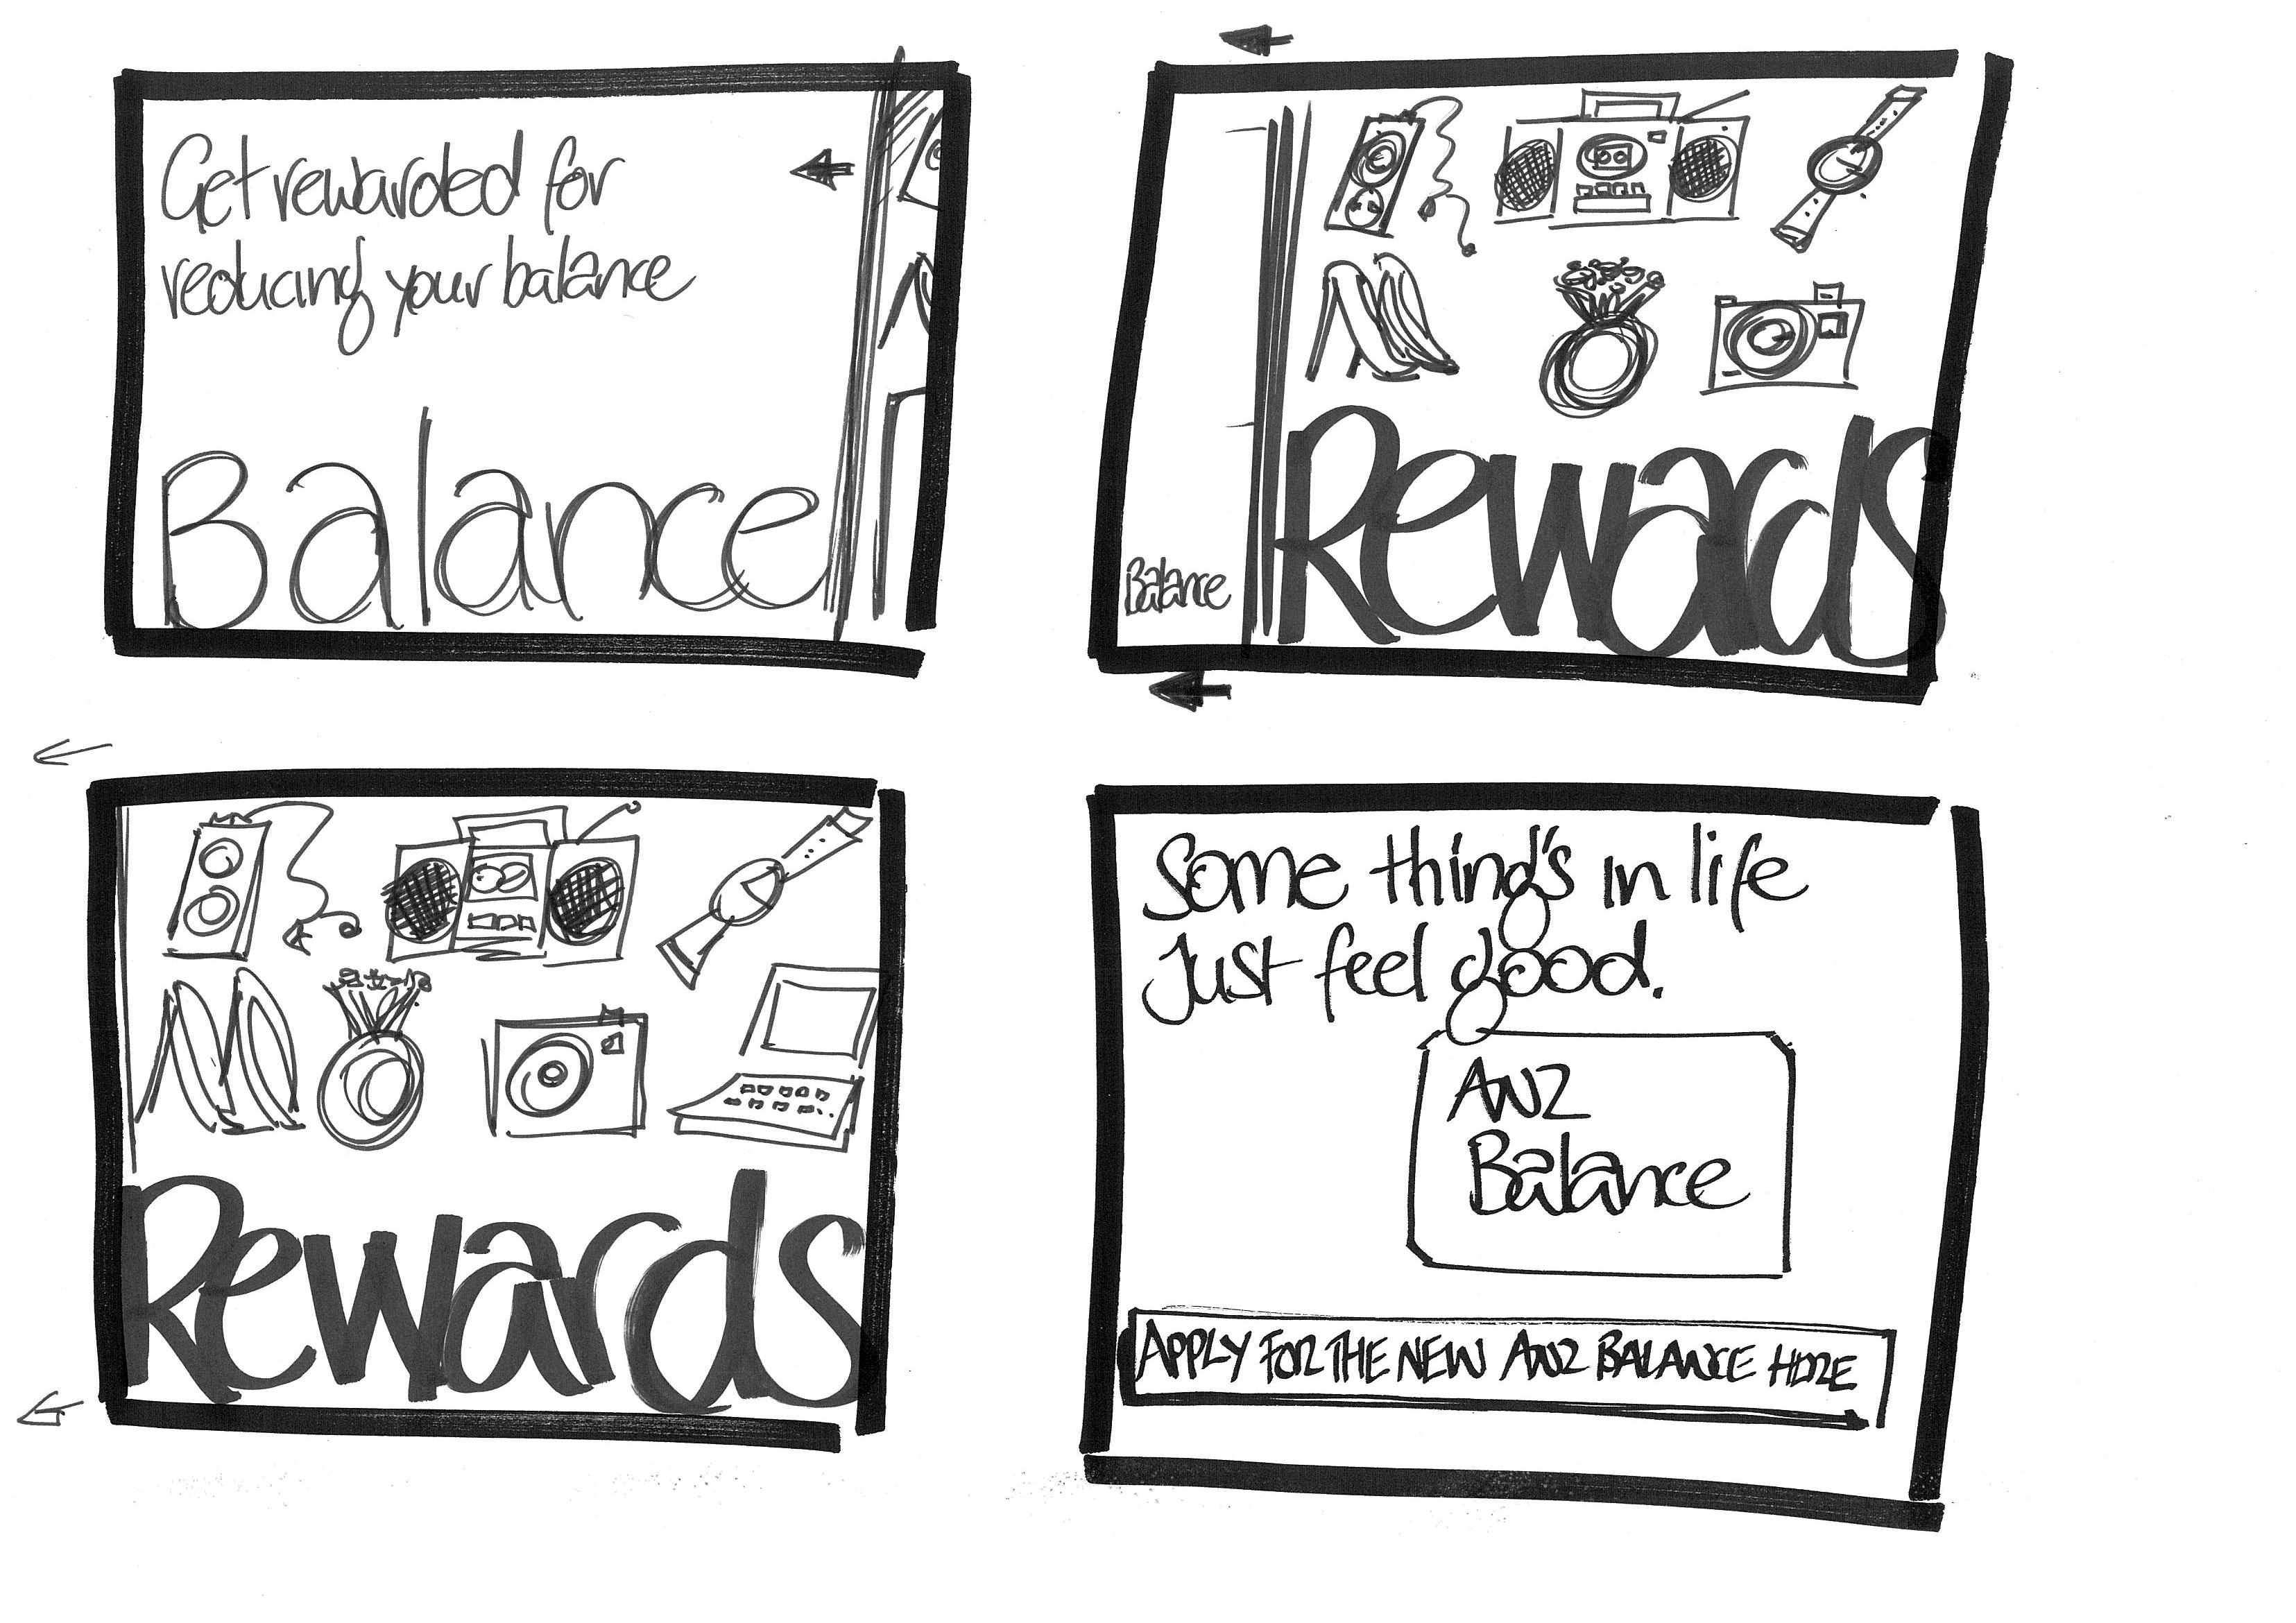 Get rewarded for
reducing your balance
Balance
Balance
Rewards
Rewards
Some thing's in life
Just feel good.
ANZ
Balance
APPLY FOR THE NEW ANZ BALANCE HERE